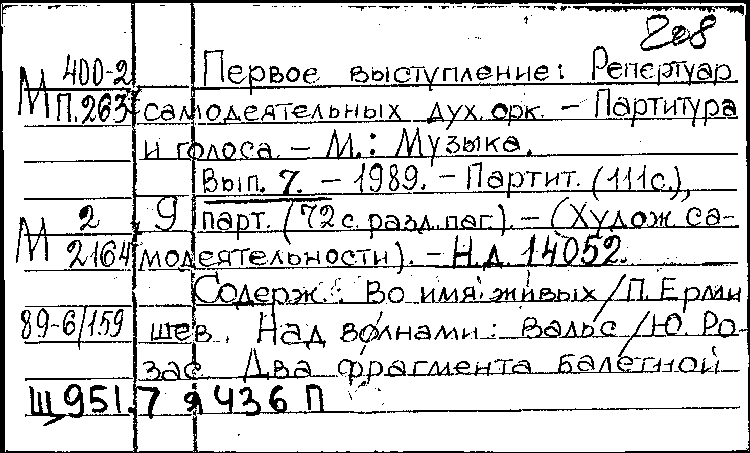 208
М 400-2 / П.263 Первое выступление: Репертуар
самодеятельных дух. орк. – Партитура
и голоса. – М.: Музыка.
Вып. 7. – 1989. – Партит. (111с.),
М 2 / 2164 9 парт. (72 с. разд. паг.). – (Худож. са-
модеятельности). – Н.д. 14052.
Содерж.: Во имя живых / П. Ерми
89-6/159 шев. Над волнами: Вальс / Ю. Ро-
зас. Два фрагмента балетной
Щ951.7 я436 П